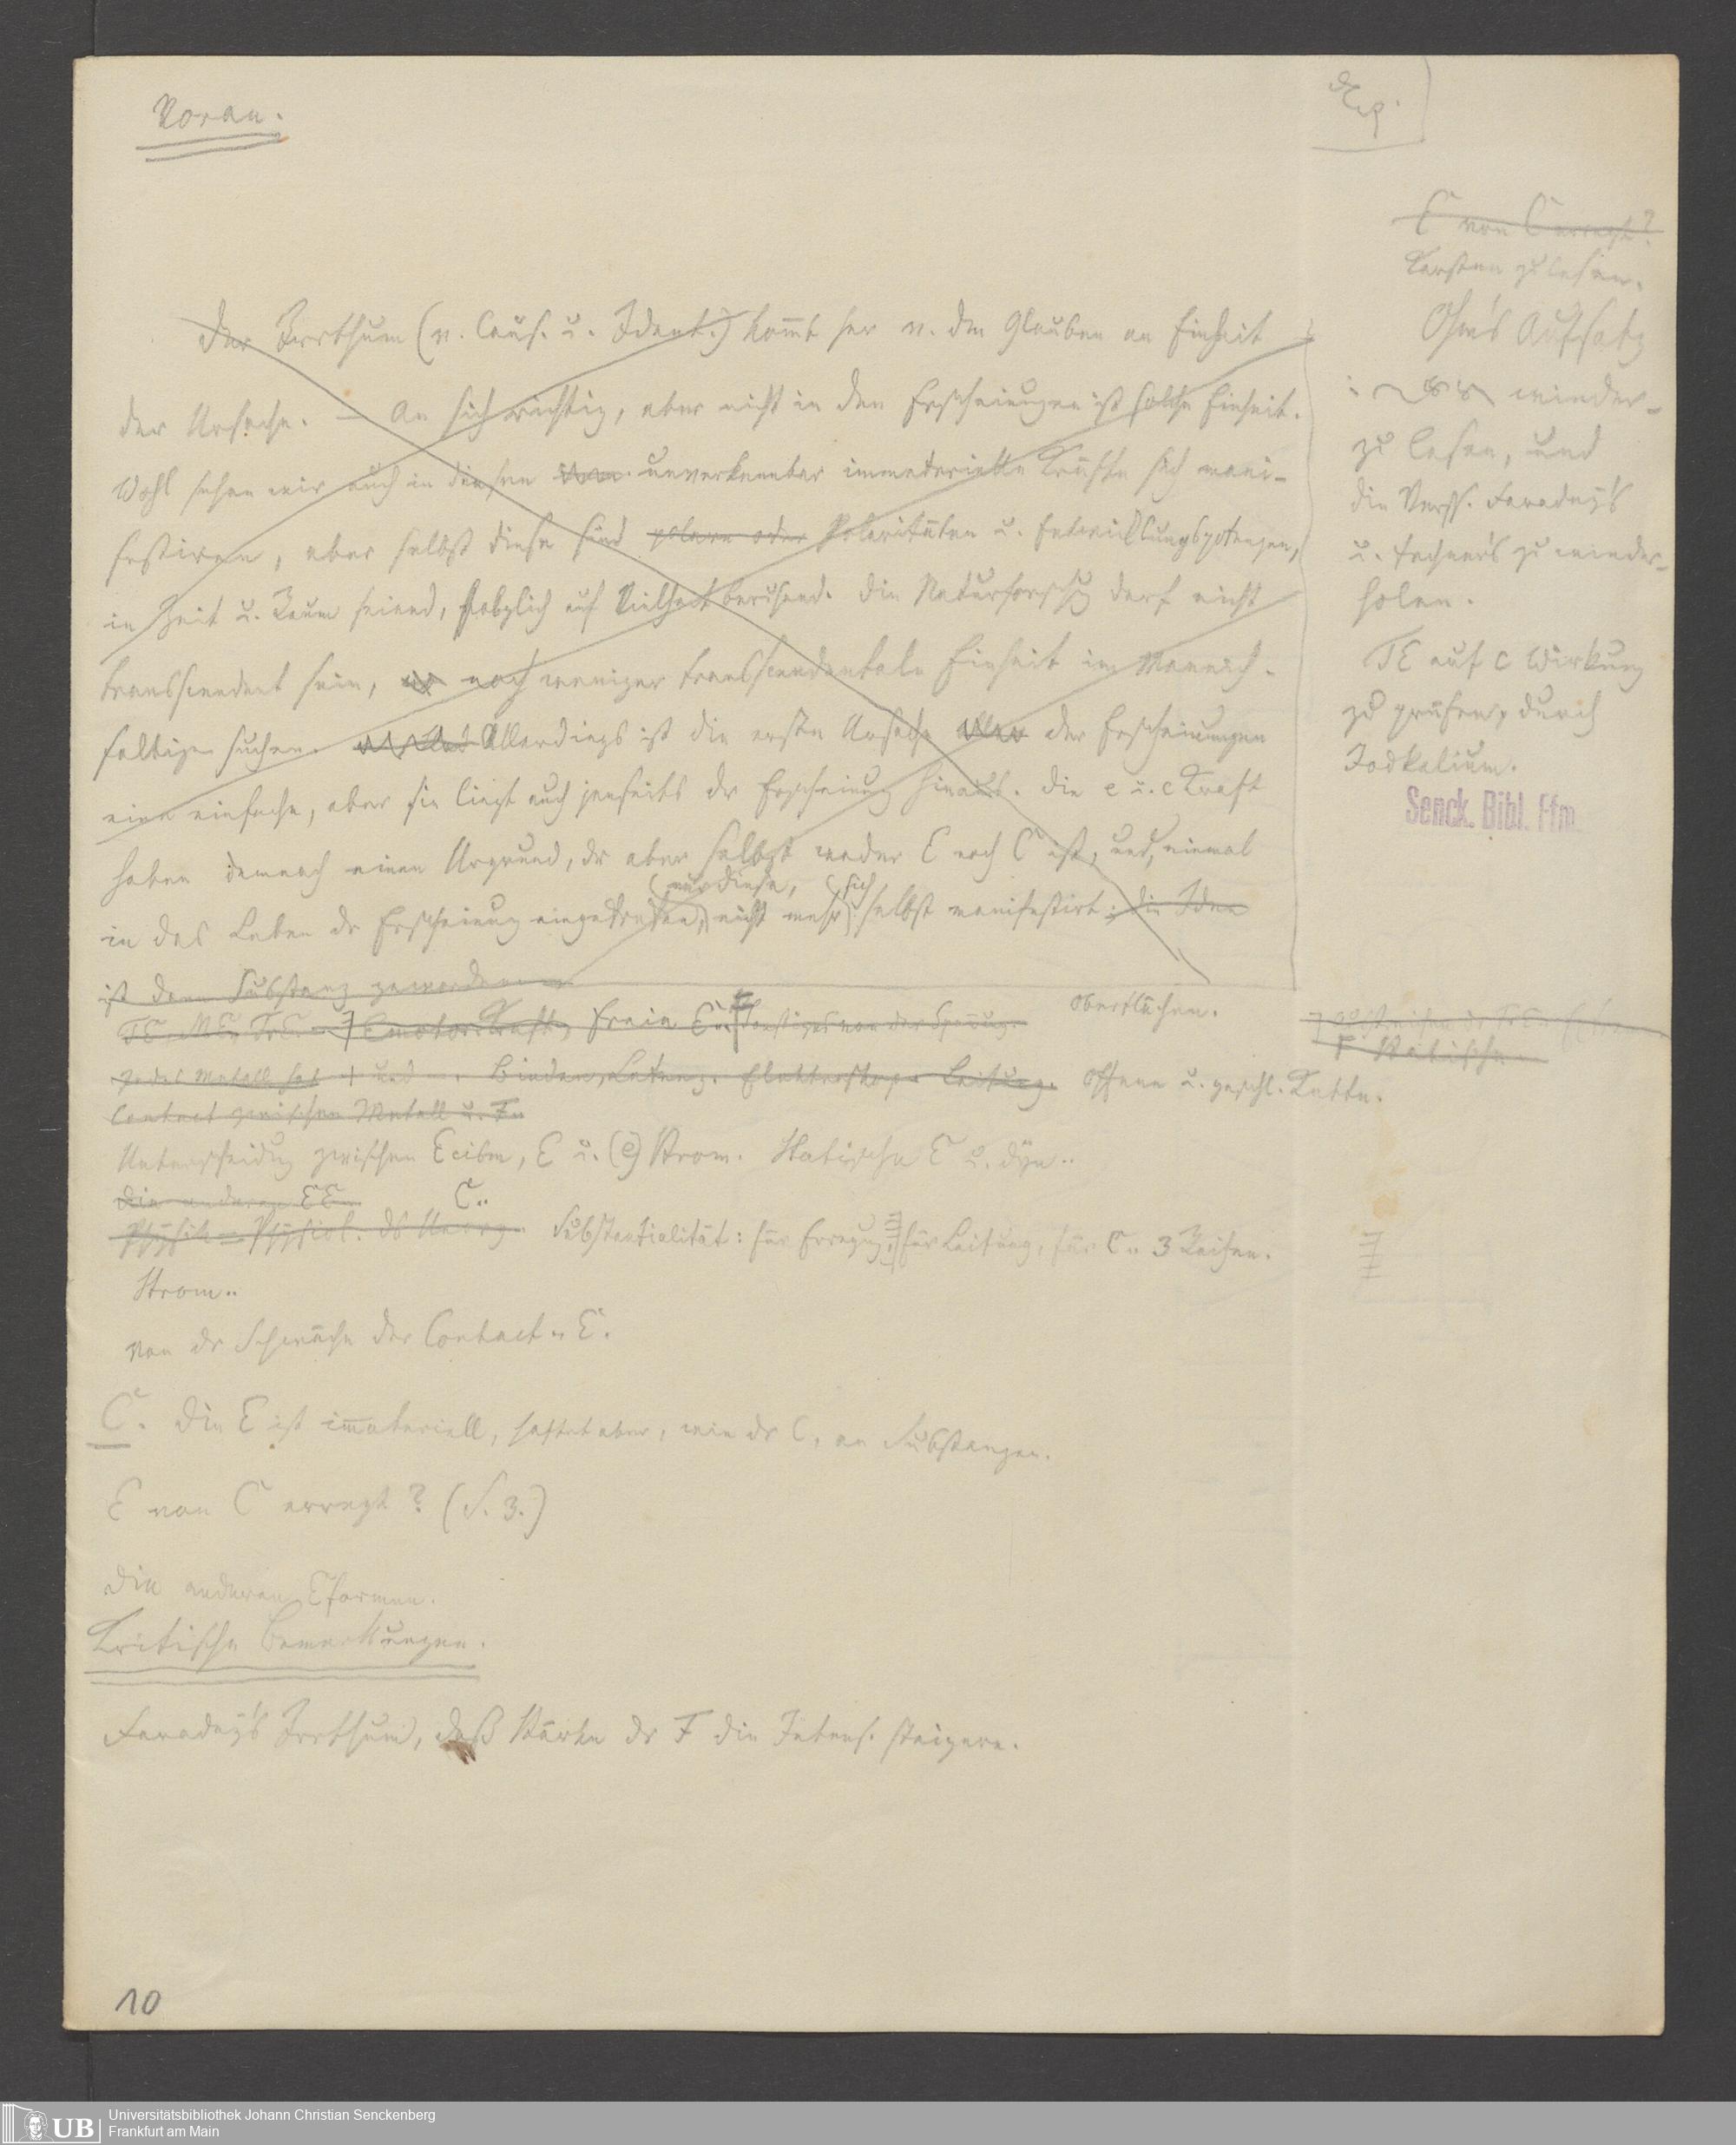 Voran.
Der Irrthum (v. Caus. u. Ident.) kom̄t her v. dem Glauben an Einheit
der Ursache. – An sich richtig, aber nicht in den Erscheinungen ist solche Einheit.
Wohl sehen wir auch in diesen unverkennbar immaterielle Kräfte sich mani-
festiren, aber selbst diese sind polare oder Polaritäten u. Entwicklungspotenzen,
in Zeit u. Raum seiend, folglich auf Vielheit beruhend. Die Naturforschg darf nicht
transscendent sein, noch weniger transscendentale Einheit im Mannich-
faltigen suchen. Allerdings ist die erste Ursache aller der Erscheinungen
eine einfache, aber sie liegt auch jenseits dr Erscheinung hinaus. Die e u. c Kraft
haben demnach einen Urgrund, dr aber selbst weder E noch C ist, und, einmal
nur diese, sich
in das Leben dr Erscheinung eingetreten, nicht mehr selbst manifestirt; die Idee
ist dann Substanz geworden
freie E Oberflächen.
jedes Metall hat + und –. Binden, Latenz. Elektroskop. Leitung. Offene u. geschl. Kette.
Contact zwischen Metall u. F.
Unterscheidug zwischen Ecibm, E u. (e) Strom. Statische E u. dyn..
Die anderen EE. C..
Physik = Physiol. ds Unorg. Substantialität: für Erregug, für Leitung, für C.. 3 Reihen.
Strom..
Von dr Schwäche der Contact-E.
C. Die E ist im̄ateriell, haftet aber, wie dr C, an Substanzen.
E von C erregt? (S. 3.)
Die anderen Eformen.
Kritische Bemerkungen.
Faraday's Irrthum, daß Stärke dr F die Intens. steigere.
10
E von C erregt?
Karsten zu lesen.
Ohm's Aufsatz
wieder-
zu lesen, und
die Verss. Faraday's
u. Fechner's zu wieder-
holen.
TE auf C Wirkung
zu prüfen, durch
Jodkalium.
Senck. Bibl. Ffm
UB
Universitätsbibliothek Johann Christian Senckenberg
Frankfurt am Main